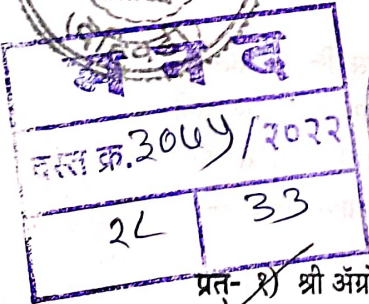 म न द
दस्त क्र. ३०७५/२०२२
२८ ३३
प्रत- १) श्री ॲग्रो